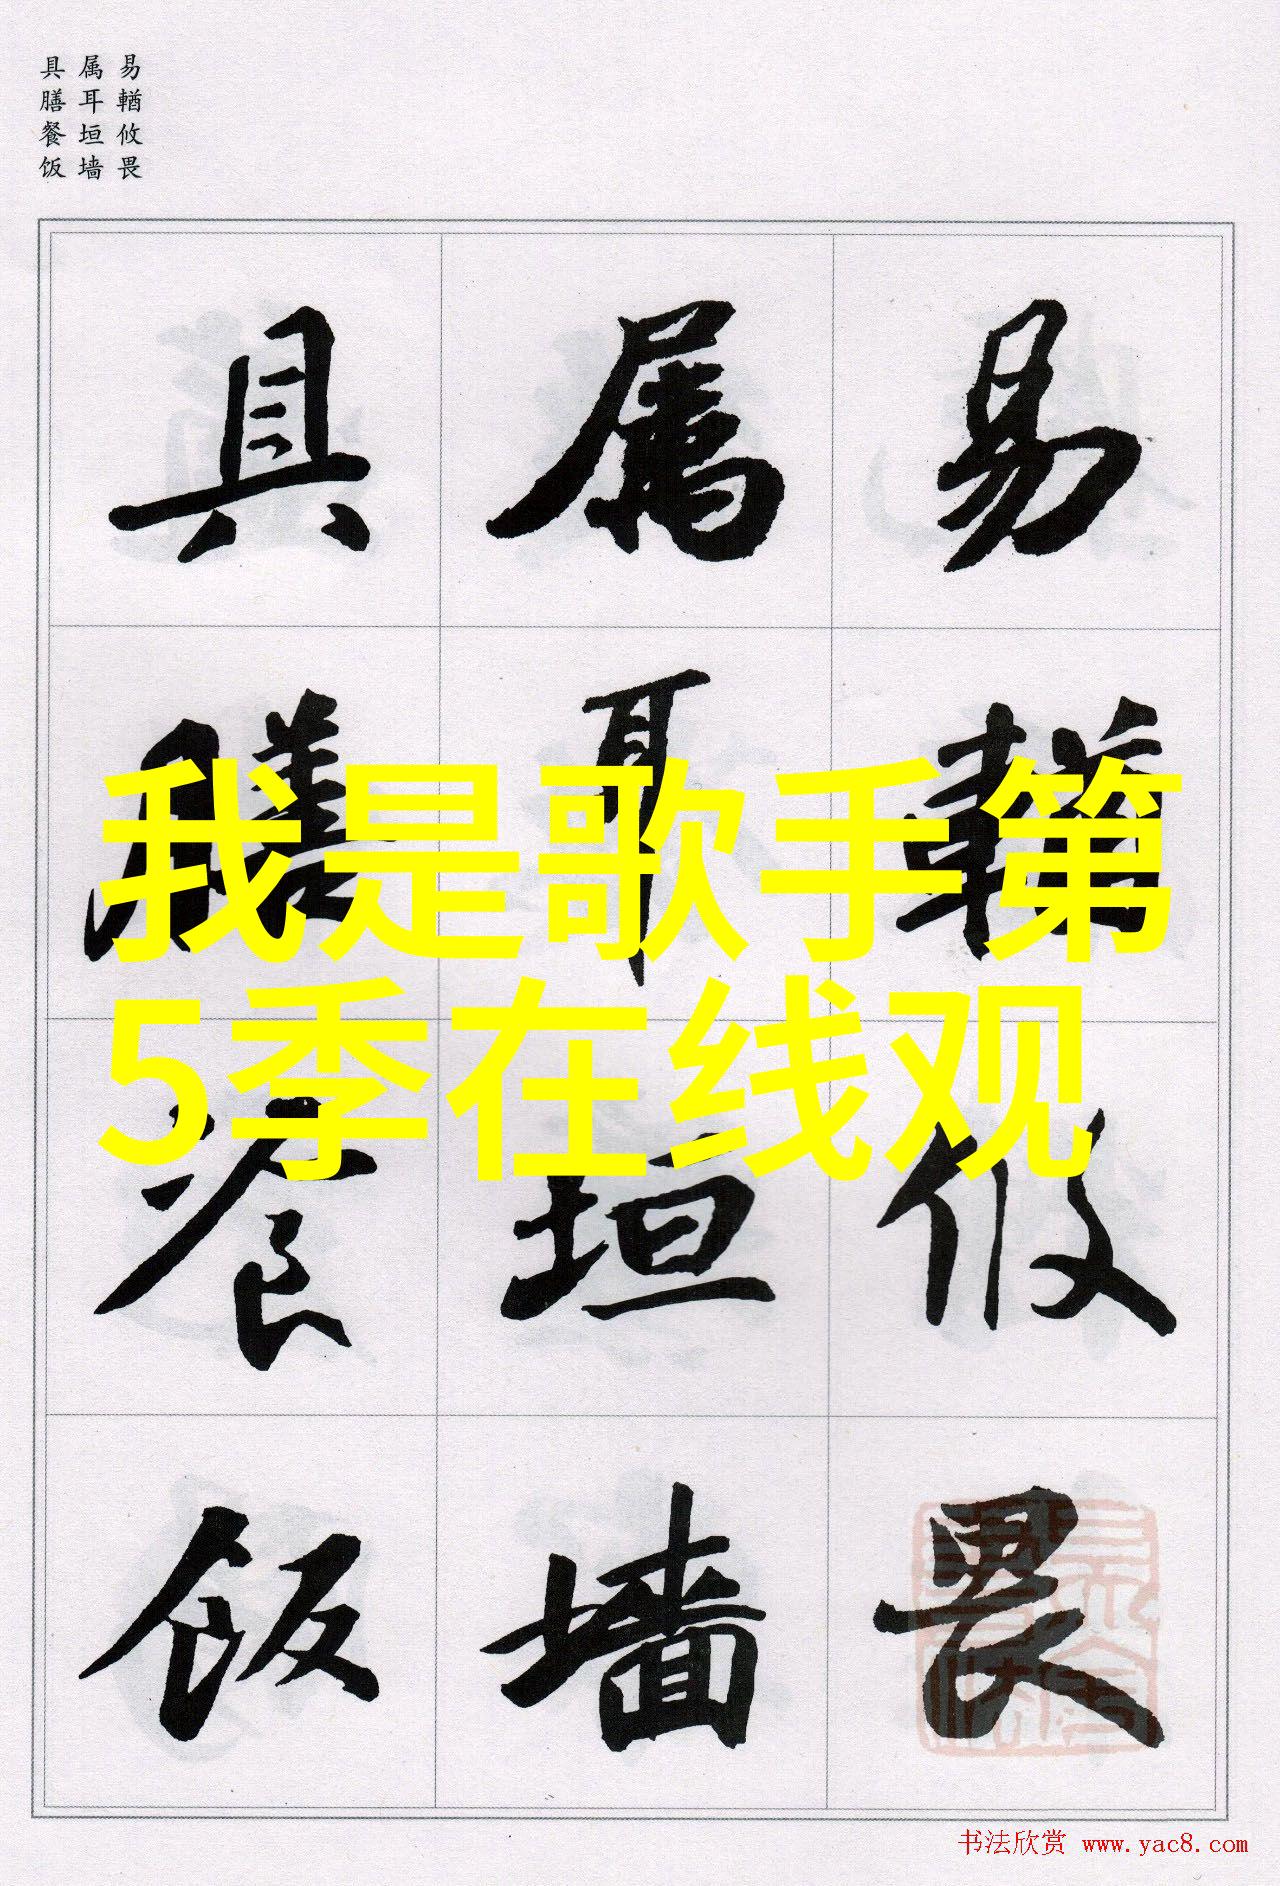 易輶攸畏
属耳垣墙
具膳餐饭
易輶攸畏
属耳垣墙
具膳餐饭
我是歌手第
5季在线观
书法欣赏 www.yac8.com